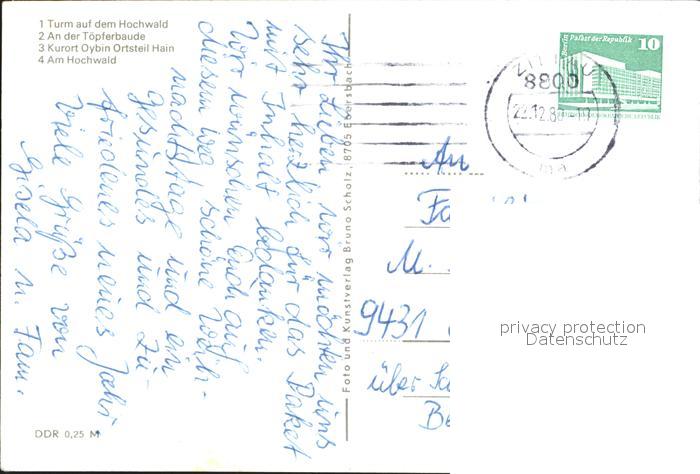 1 Turm auf dem Hochwald
2 An der Töpferbaude
3 Kurort Oybin Ortsteil Hain
4 Am Hochwald
Ihr Lieben wir möchten uns
sehr herzlich für das Paket
mit Inhalt bedanken.
Wir wünschen Euch auf
diesem Weg schöne Weih-
nachtstage und ein
gesundes und zu-
friedenes neues Jahr.
Viele Grüße von
Gisela u. Fam.
DDR 0,25 M
Foto und Kunstverlag Bruno Scholz, 8705 Ebersbach
Berlin Palast der Republik 10
8800
22.12.8
An
Fa
M.
9431
über
Be
privacy protection
Datenschutz